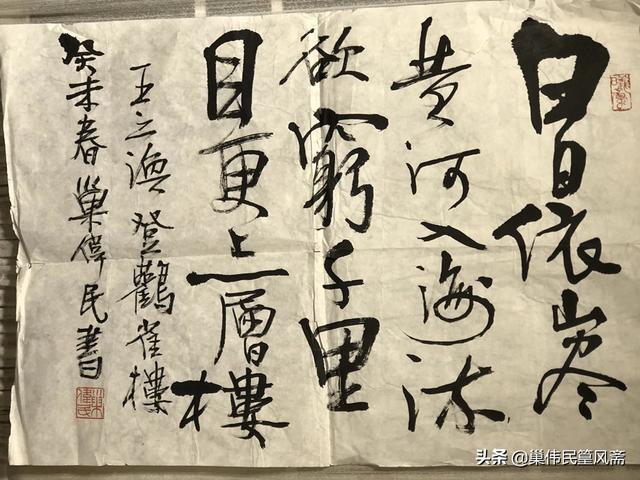 白日依山尽
黄河入海流
欲窮千里
目更上一層樓
王之渙登鸛雀樓
癸未春巢偉民書
头条 @巢伟民篁风斋